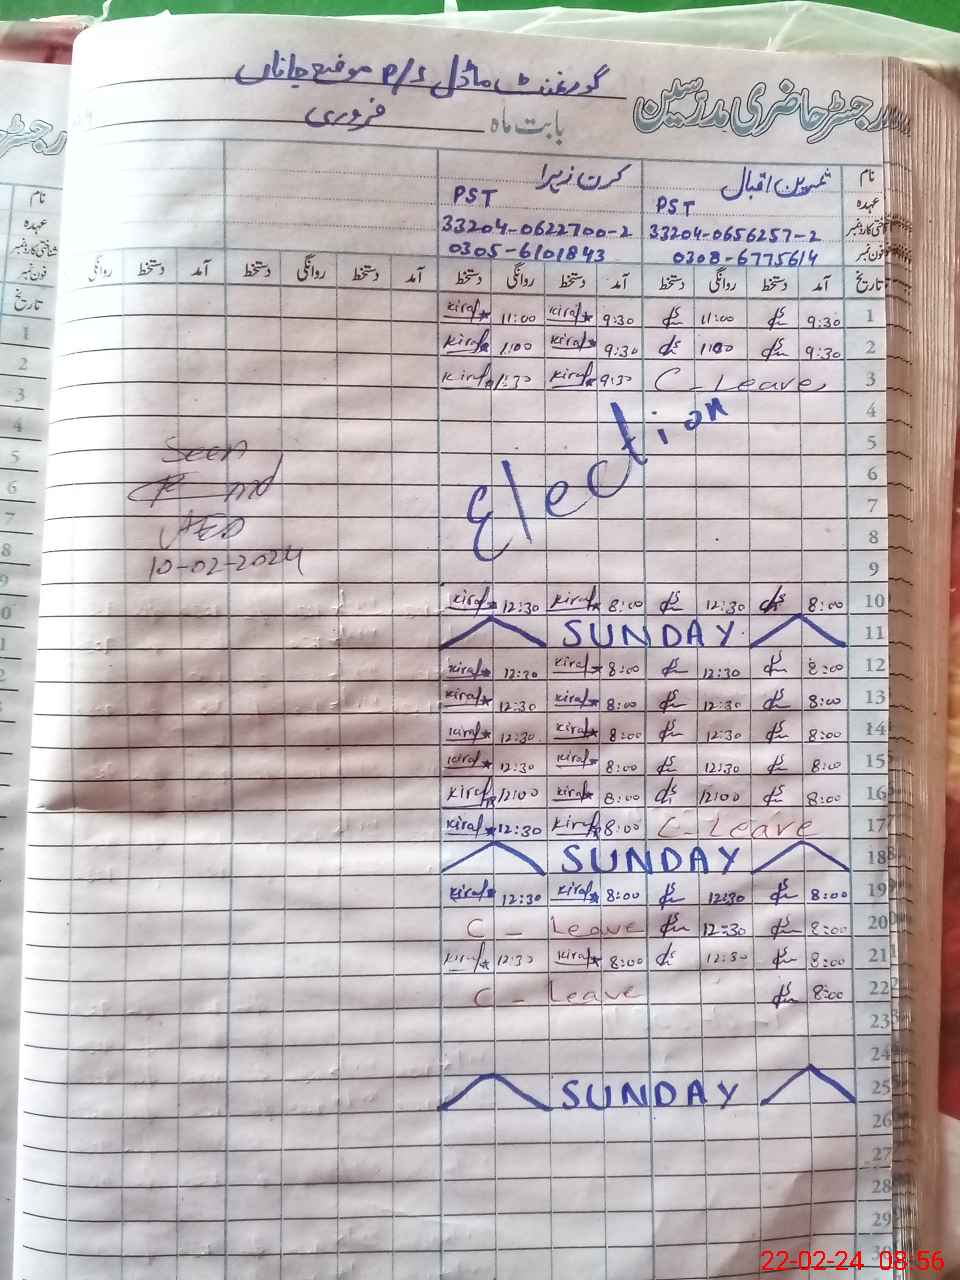 رجسٹر حاضری مدرسین گورنمنٹ ماڈل P/S موضع جاناں
بابت ماہ فروری
نام ثمرین اقبال کرن زہرا
عہدہ PST PST
شناختی کارڈ نمبر 33204-0656257-2 33204-0622700-2
فون نمبر 0308-6775614 0305-6101843
تاریخ آمد دستخط روانگی دستخط آمد دستخط روانگی دستخط آمد دستخط روانگی دستخط آمد دستخط روانگی
1 9:30 11:00 9:30 Kiraf 11:00 Kiraf
2 9:30 11:00 9:30 Kiraf 1:00 Kiraf
3 C-Leave 9:30 Kiraf 1:30 Kiraf
4 Election
5
6
7
8
9
Seen
AEO
10-02-2024
10 8:00 12:30 8:00 Kiraf 12:30 Kiraf
11 SUNDAY
12 8:00 12:30 8:00 Kiraf 12:30 Kiraf
13 8:00 12:30 8:00 Kiraf 12:30 Kiraf
14 8:00 12:30 8:00 Kiraf 12:30 Kiraf
15 8:00 12:30 8:00 Kiraf 12:30 Kiraf
16 8:00 12:00 8:00 Kiraf 12:00 Kiraf
17 C-Leave 8:00 Kiraf 12:30 Kiraf
18 SUNDAY
19 8:00 12:30 8:00 Kiraf 12:30 Kiraf
20 8:00 12:30 C-Leave
21 8:00 12:30 8:00 Kiraf 12:30 Kiraf
22 8:00 C-Leave
23
24
25 SUNDAY
26
27
28
29
30
22-02-24 08:56